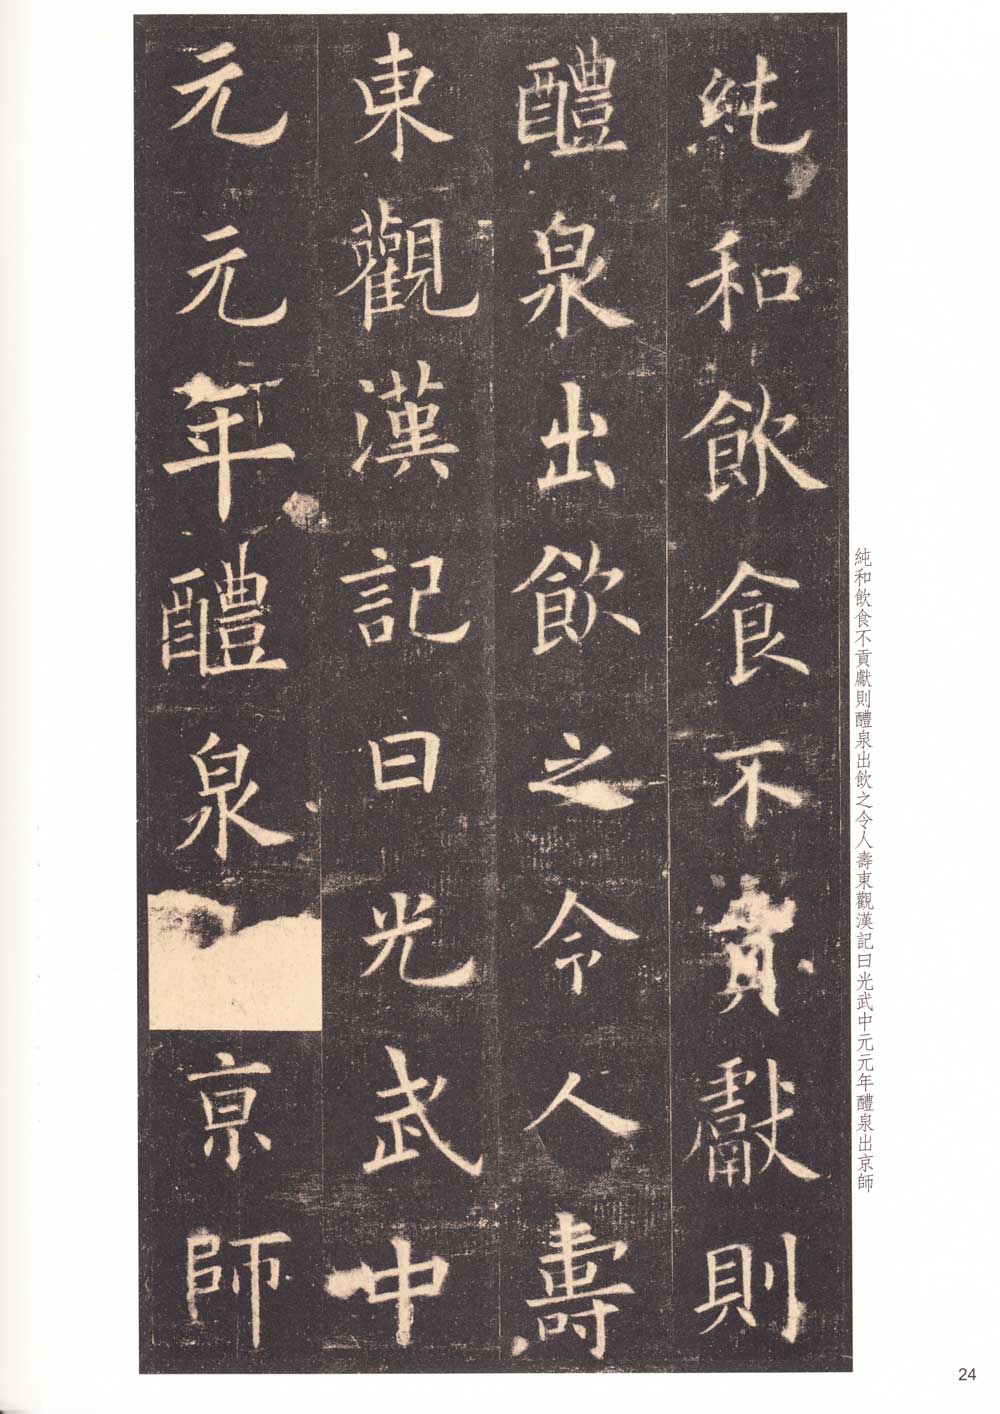 純和飲食不貢獻則
醴泉出飲之令人壽
東觀漢記曰光武中
元元年醴泉京師
純和飲食不貢獻則醴泉出飲之令人壽東觀漢記曰光武中元元年醴泉出京師
24